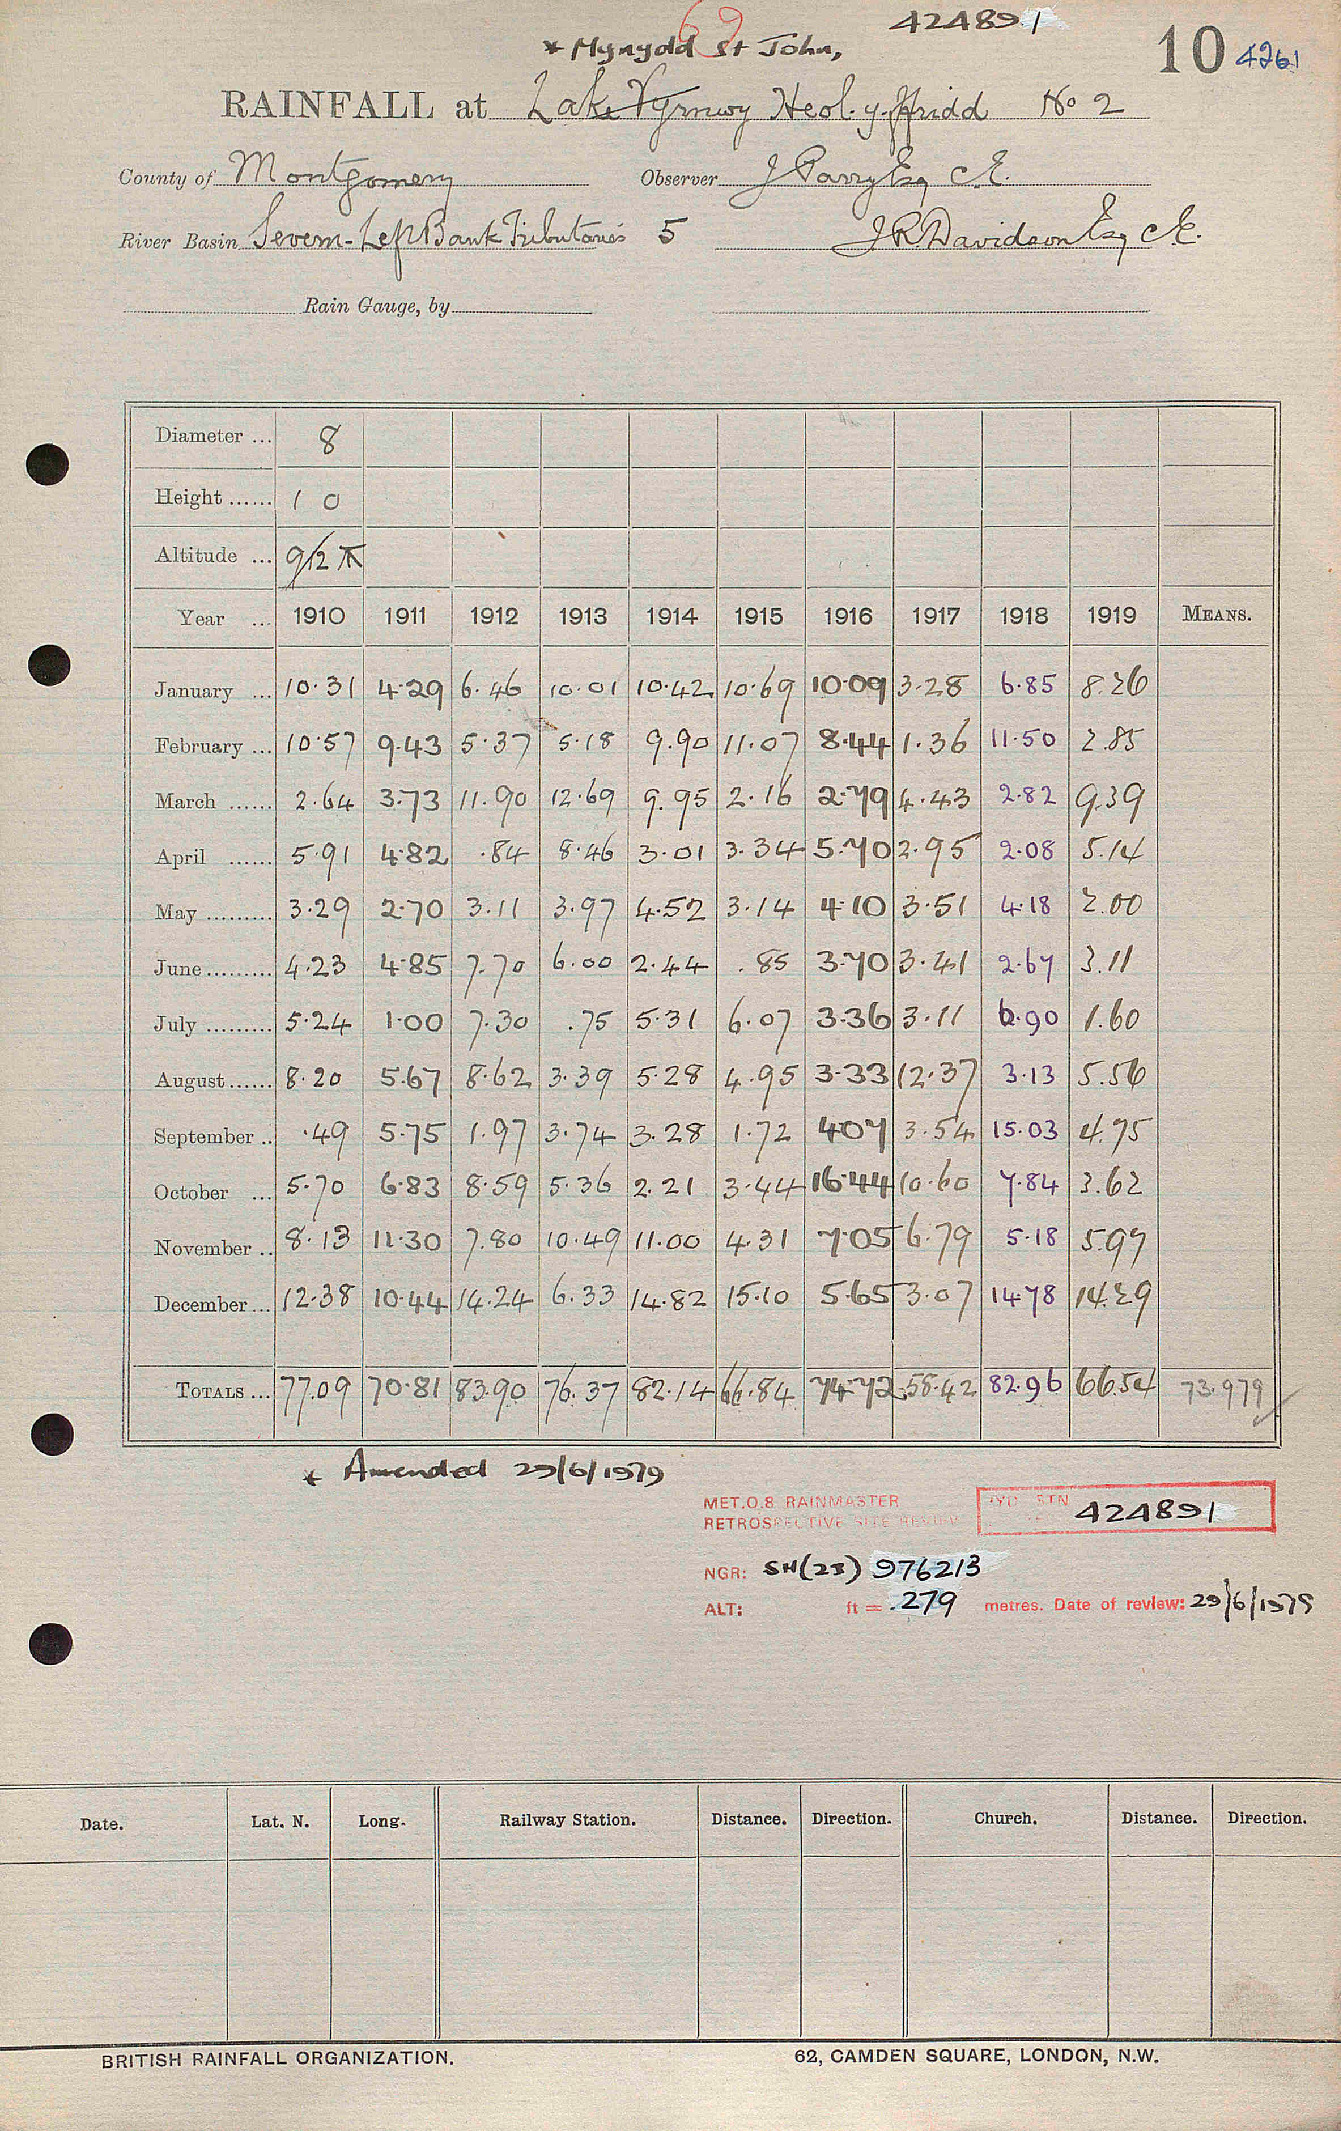 69 424891
* Mynydd St John, 10 4261
RAINFALL at Lake Vyrnwy Heol-y-ffridd No 2
County of Montgomery Observer J Parry Esq C.E.
River Basin Severn - Left Bank Tributaries 5 J R Davidson Esq C.E.
Rain Gauge, by
Diameter ... 8
Height ...... 1 0
Altitude ... 912
Year ... 1910 1911 1912 1913 1914 1915 1916 1917 1918 1919 MEANS.
January ... 10.31 4.29 6.46 10.01 10.42 10.69 10.09 3.28 6.85 8.26
February ... 10.57 9.43 5.37 5.18 9.90 11.07 8.44 1.36 11.50 2.85
March ...... 2.64 3.73 11.90 12.69 9.95 2.16 2.79 4.43 2.82 9.39
April ...... 5.91 4.82 .84 8.46 3.01 3.34 5.70 2.95 2.08 5.14
May ......... 3.29 2.70 3.11 3.97 4.52 3.14 4.10 3.51 4.18 2.00
June ......... 4.23 4.85 7.70 6.00 2.44 .85 3.70 3.41 2.67 3.11
July ......... 5.24 1.00 7.30 .75 5.31 6.07 3.36 3.11 6.90 1.60
August ...... 8.20 5.67 8.62 3.39 5.28 4.95 3.33 12.37 3.13 5.56
September .. .49 5.75 1.97 3.74 3.28 1.72 4.07 3.54 15.03 4.75
October ... 5.70 6.83 8.59 5.36 2.21 3.44 16.44 10.60 7.84 3.62
November .. 8.13 11.30 7.80 10.49 11.00 4.31 7.05 6.79 5.18 5.97
December ... 12.38 10.44 14.24 6.33 14.82 15.10 5.65 3.07 14.78 14.29
TOTALS ... 77.09 70.81 83.90 76.37 82.14 66.84 74.72 58.42 82.96 66.54 73.979
* Amended 29/6/1979
MET.O.8 RAINMASTER
RETROSPECTIVE SITE REVIEW STN 424891
NGR: SH(23) 976213
ALT: ft = .279 metres. Date of review: 29/6/1979
Date. Lat. N. Long. Railway Station. Distance. Direction. Church. Distance. Direction.
BRITISH RAINFALL ORGANIZATION. 62, CAMDEN SQUARE, LONDON, N.W.